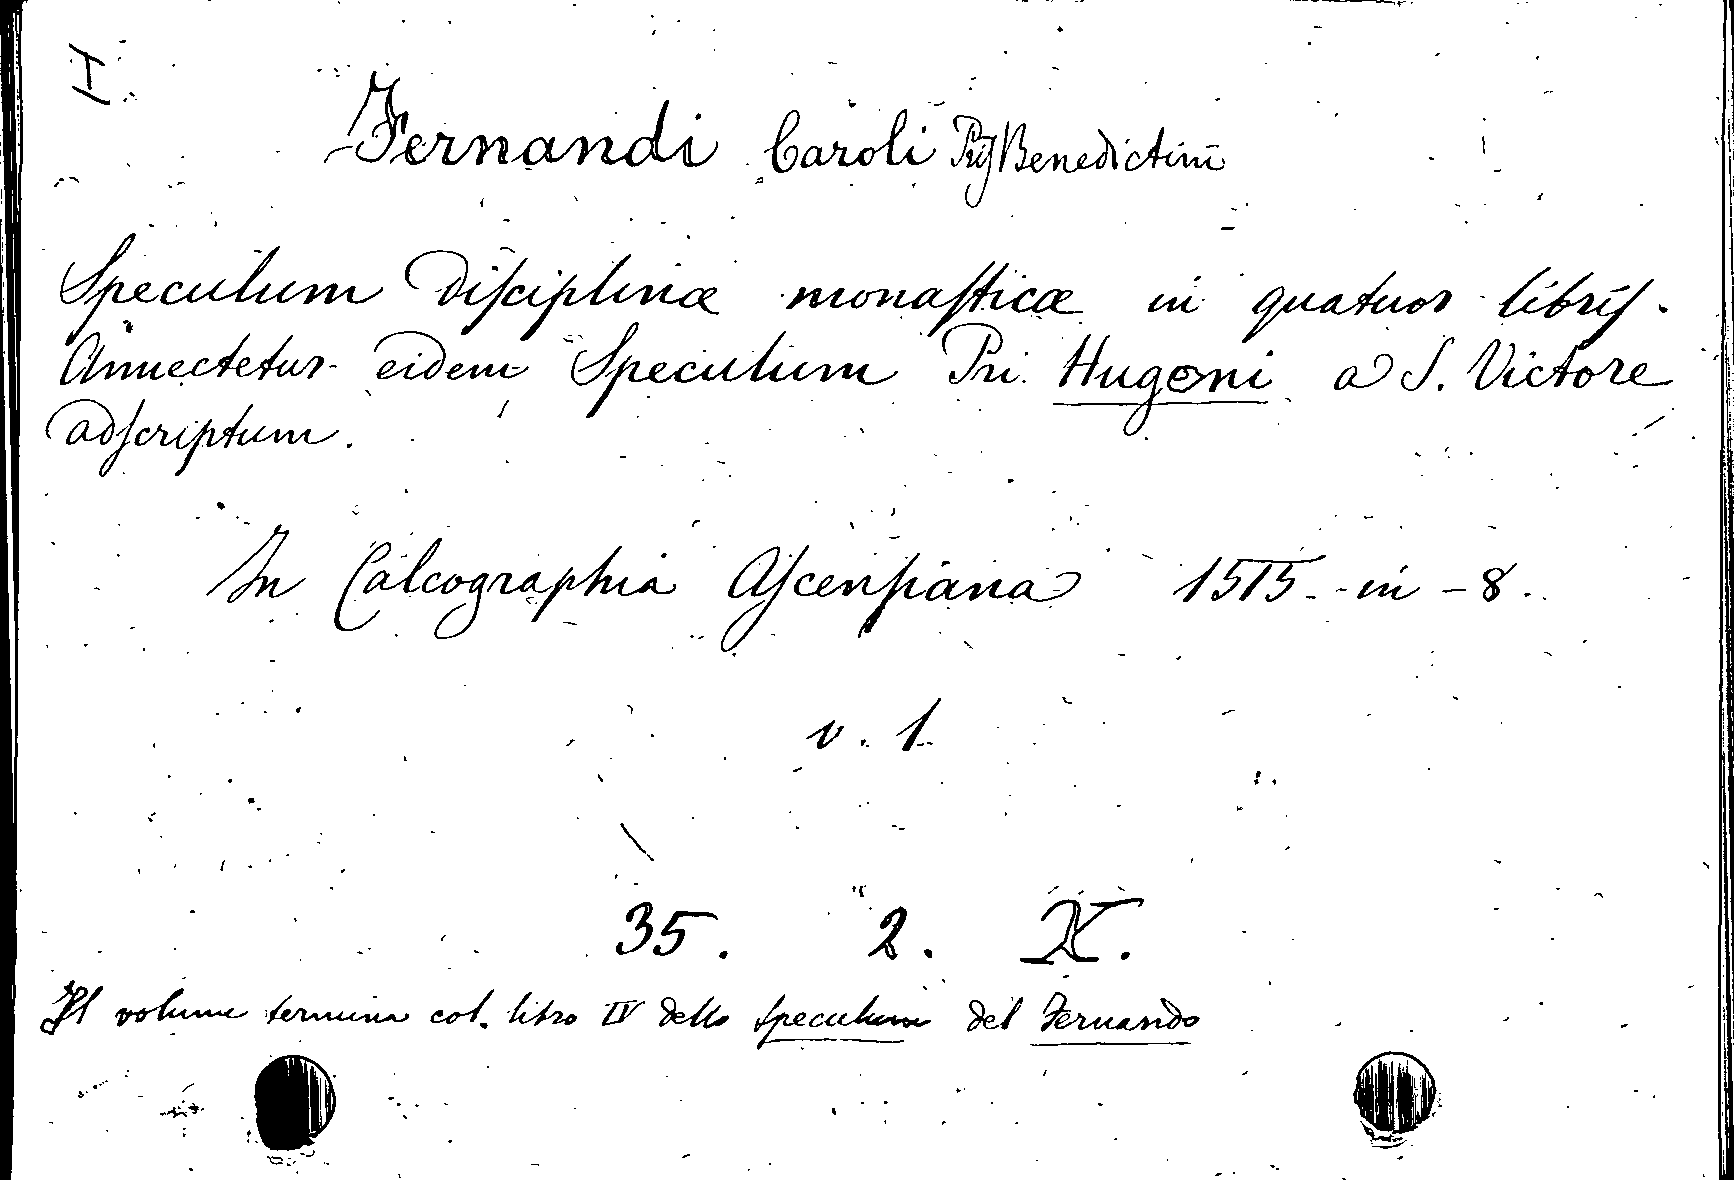 I
Fernandi Caroli Prij Benedictini
Speculum disciplinæ monasticæ in quatuor libris.
Annectetur eidem Speculum Pri. Hugoni a S. Victore
adscriptum.
In Calcographia Ascensiana 1515. in-8.
v. 1
35. 2. X.
Il volume termina col. libro IV dello speculum del Fernando